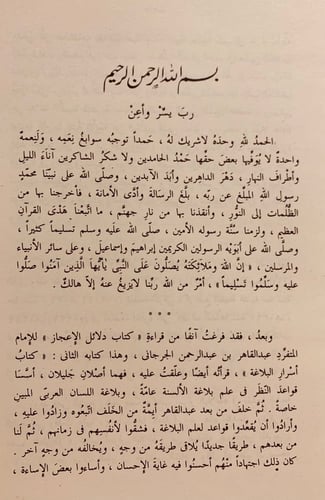 بسم الله الرحمن الرحيم
ربَ يسِّرْ وأعِنْ
الحمدُ للهِ وحدَهُ لاشريك لهُ ، حَمداً توجبُه سوابِغُ نِعَمِه ، ولَنِعمةٌ
واحدةٌ لا يُوَفِّيها بعضَ حقِّها حَمْدُ الحامدين ولا شكرُ الشاكرين آناءَ الليل
وأطرافَ النهارِ ، دَهْرَ الداهِرين وأبَدَ الآبدين ، وصلَّى الله على نبيّنا محمّدٍ
رسولِ اللهِ المبلّغِ عن ربّه ، بلَّغَ الرسالةَ وأدَّى الأمانة ، فأخرجنا بها من
الظُّلُمات إلى النُّورِ ، وأنقذنا بها من نارِ جهنَّم ، ما اتَّبعناَ هَدْىَ القرآنِ
العظيم ، ولزمنا سُنَّةَ رسولِه الأمين ، صلى اللهُ عليه وسلَّم تسليماً كثيراً ،
وصلَّى الله على أبَوَيْه الرسولين الكريمين إبراهيمَ وإسماعيل ، وعلى سائر الأنبياء
والمرسلين ، « إنَّ اللهَ ومَلَائِكَتَهُ يُصَلُّونَ عَلَى النَّبِيِّ يَأَيُّهاَ الَّذِينَ آمَنُوا صَلُّوا
عليه وسَلِّمُوا تَسْلِيماً » ، أمْرٌ من اللهِ ربِّنا لايَزِيغُ عنهُ إلاّ هالكٌ .
* * *
وبعدُ ، فقد فرغتُ آنفًا من قراءةِ « كتاب دلائل الإعجاز » للإمام
المتفرِّدِ عبدالقاهرِ بن عبدالرحمن الجرجانى ، وهذا كتابه الثانى : « كتابُ
أسرارِ البلاغة » ، قرأتُه أيضًا وعلّقتُ عليه ، فهما أصْلان جليلان ، أسَّسَا
قواعدَ النّظَر فى علم بلاغةِ الألسنةِ عامّةً ، وبلاغةِ اللسان العربىّ المبين
خاصةً . ثُمّ خلَفَ من بعد عبدالقاهر أيِمّةٌ من الخَلَف اتّبعُوه وزادُوا عليه ،
وأرادُوا أن يُقعِّدوا قواعدَ لعلم البلاغة ، فشقُّوا لأنفُسِهم فى زمانهم ، ثُمّ لنا
من بعدهم ، طريقًا جديدًا يُلاقى طريقَهُ من وجهٍ ، ويُخالفُه من وجهٍ آخر .
كان ذلِك اجتهادًا منْهُم أحسنُوا فيه غايةَ الإحسان ، وأساءوا بعضَ الإساءة ،